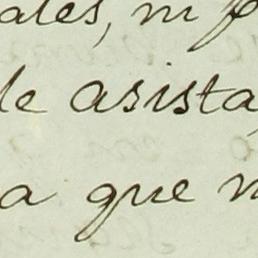 ales, ni f
le asista,
a que n